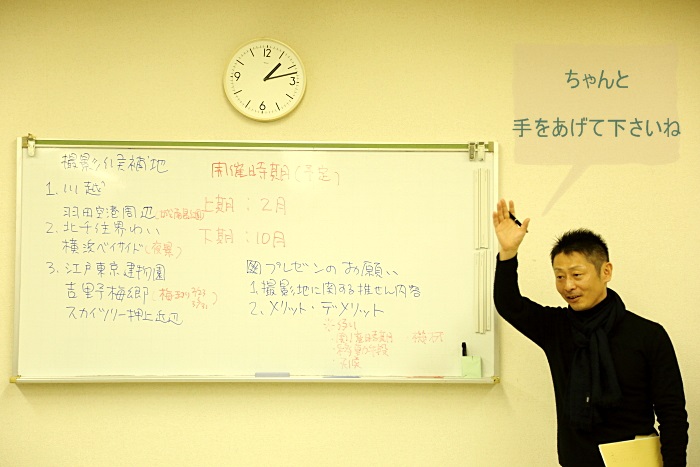 ちゃんと
手をあげて下さいね
12
3
6
9
撮影候補地
1. 川越
羽田空港周辺
2. 北千住界わい
横浜ベイサイド(夜景)
3. 江戸東京建物園
吉野梅郷(梅まつり
スカイツリー押上近辺
開催時期(予定)
上期:2月
下期:10月
プレゼンのお願い
1. 撮影地に関する推せん内容
2. メリット・デメリット